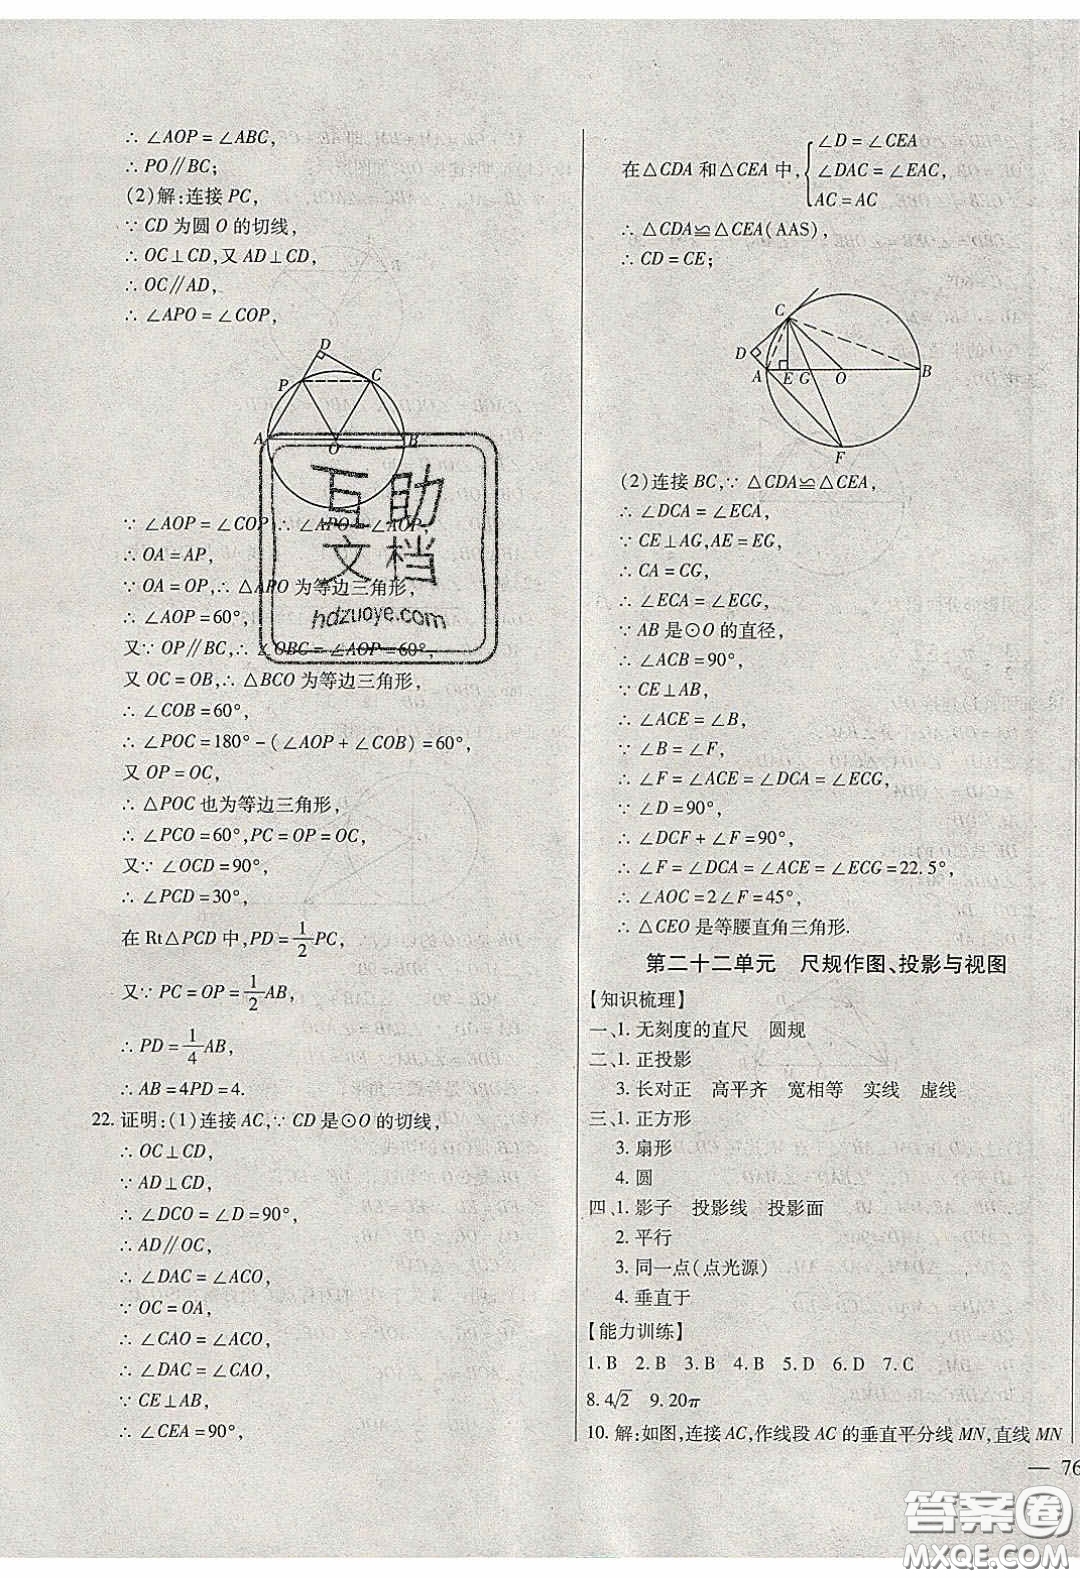 ∴ ∠AOP = ∠ABC,
∴ PO∥BC;
(2)解:连接 PC,
∵ CD 为圆 O 的切线,
∴ OC⊥CD,又 AD⊥CD,
∴ OC∥AD,
∴ ∠APO = ∠COP,
D
P
C
A
O
B
∵ ∠AOP = ∠COP,∴ ∠APO = ∠AOP,
∴ OA = AP,
∵ OA = OP,∴ △APO 为等边三角形,
∴ ∠AOP = 60°,
又∵ OP∥BC,∴ ∠OBC = ∠AOP = 60°,
又 OC = OB,∴ △BCO 为等边三角形,
∴ ∠COB = 60°,
∴ ∠POC = 180° - (∠AOP + ∠COB) = 60°,
又 OP = OC,
∴ △POC 也为等边三角形,
∴ ∠PCO = 60°,PC = OP = OC,
又∵ ∠OCD = 90°,
∴ ∠PCD = 30°,
在 Rt△PCD 中,PD = 1/2 PC,
又∵ PC = OP = 1/2 AB,
∴ PD = 1/4 AB,
∴ AB = 4PD = 4.
22. 证明:(1)连接 AC,∵ CD 是⊙O 的切线,
∴ OC⊥CD,
∵ AD⊥CD,
∴ ∠DCO = ∠D = 90°,
∴ AD∥OC,
∴ ∠DAC = ∠ACO,
∵ OC = OA,
∴ ∠CAO = ∠ACO,
∴ ∠DAC = ∠CAO,
∵ CE⊥AB,
∴ ∠CEA = 90°,
互助
文档
hdzuoye.com
∠D = ∠CEA
在△CDA 和△CEA 中, ∠DAC = ∠EAC,
AC = AC
∴ △CDA≌△CEA(AAS),
∴ CD = CE;
C
D
A
E
G
O
B
F
(2)连接 BC,∵ △CDA≌△CEA,
∴ ∠DCA = ∠ECA,
∵ CE⊥AG,AE = EG,
∴ CA = CG,
∴ ∠ECA = ∠ECG,
∵ AB 是⊙O 的直径,
∴ ∠ACB = 90°,
∵ CE⊥AB,
∴ ∠ACE = ∠B,
∵ ∠B = ∠F,
∴ ∠F = ∠ACE = ∠DCA = ∠ECG,
∵ ∠D = 90°,
∴ ∠DCF + ∠F = 90°,
∴ ∠F = ∠DCA = ∠ACE = ∠ECG = 22.5°,
∴ ∠AOC = 2∠F = 45°,
∴ △CEO 是等腰直角三角形.
第二十二单元 尺规作图、投影与视图
【知识梳理】
一、1. 无刻度的直尺 圆规
二、1. 正投影
3. 长对正 高平齐 宽相等 实线 虚线
三、1. 正方形
3. 扇形
4. 圆
四、1. 影子 投影线 投影面
2. 平行
3. 同一点(点光源)
4. 垂直于
【能力训练】
1. B 2. B 3. B 4. B 5. D 6. D 7. C
8. 4√2 9. 20π
10. 解:如图,连接 AC,作线段 AC 的垂直平分线 MN,直线 MN
— 76
答案圈
MXQE.COM